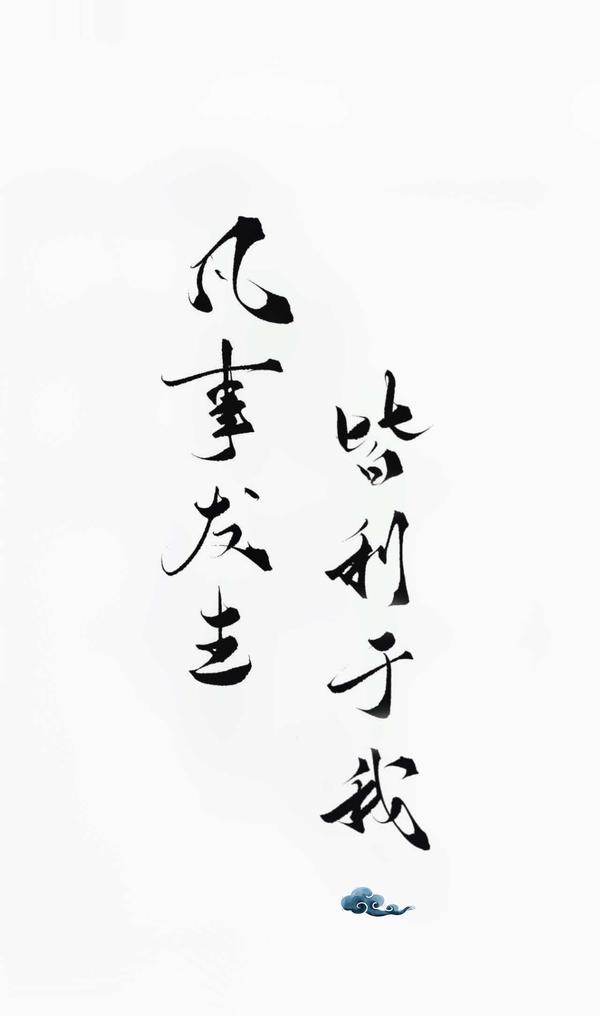 凡事发生
皆利于我